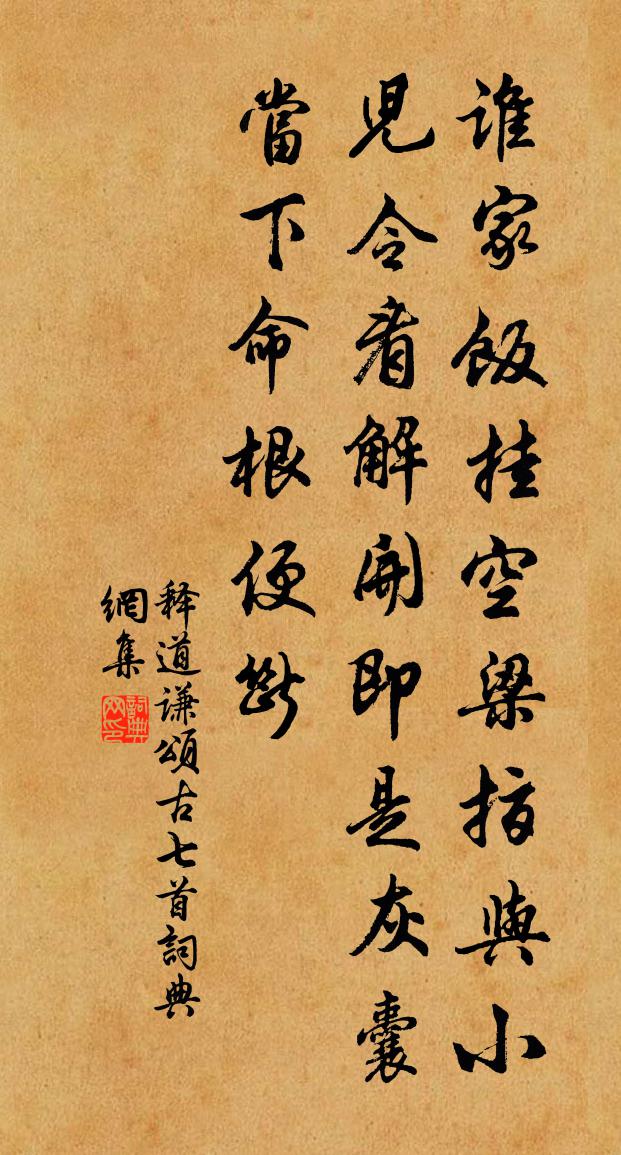 谁家飯挂空梁指與小
児令看解開即是灰囊
當下命根便斷
释道谦頌古七首詞典
網集
詞典網印